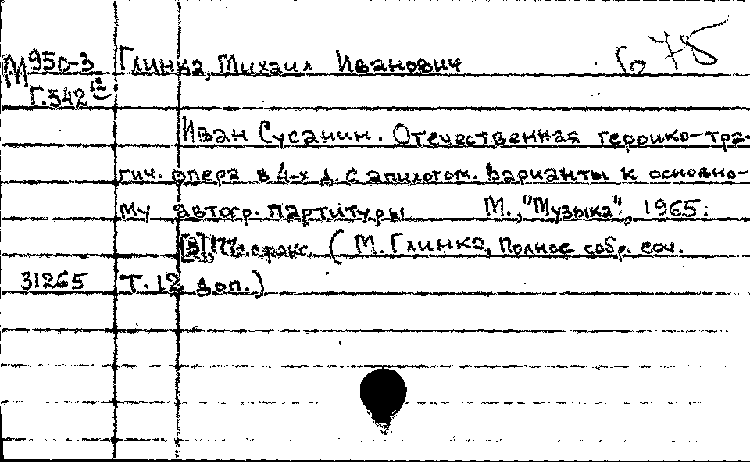 М 950-3 Глинка, Михаил Иванович 78
Г.542
Иван Сусанин. Отечественная героико-тра-
гич. опера в 4-х д. с эпилогом. Варианты к основно-
му автогр. партитуры М., "Музыка", 1965.
(М. Глинка, Полное собр. соч.
31265 Т. 12 доп.)